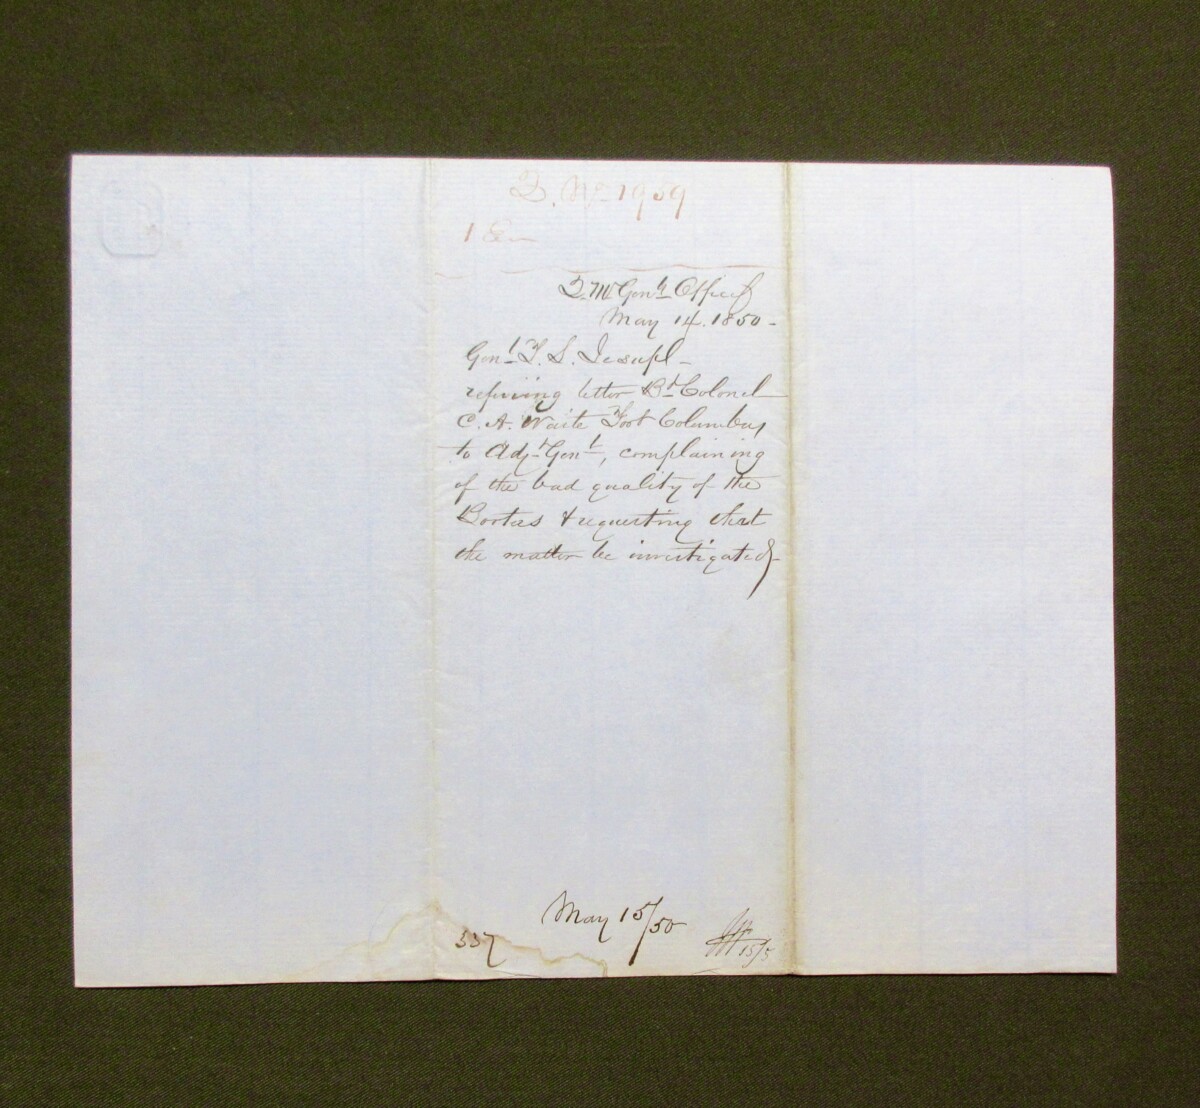 Q. No 1959
1 En
Q. M Genls Office
May 14. 1850-
Genl T. S. Jesup-
refering letter Bt Colonel
C. A. Waite Foot Columbus
to Adjt Genl, complaining
of the bad quality of the
Bootees & requesting that
the matter be investigated-
May 15/50
337
15/5